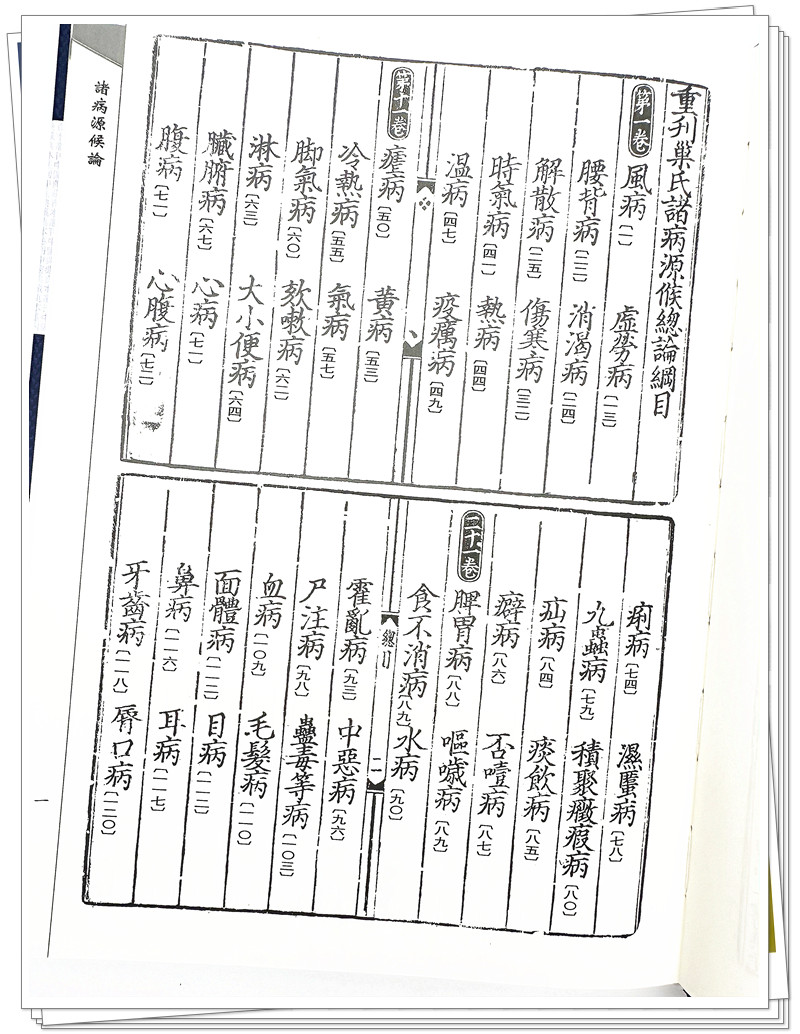 重刋巢氏諸病源候總論綱目
第一卷
風病〔一〕 虛勞病〔一三〕
腰背病〔二三〕 消渴病〔二四〕
解散病〔二五〕 傷寒病〔三二〕
時氣病〔四一〕 熱病〔四四〕
溫病〔四七〕 疫癘病〔四九〕
第十一卷
瘧病〔五〇〕 黃病〔五三〕
冷熱病〔五五〕 氣病〔五七〕
脚氣病〔六〇〕 欬嗽病〔六二〕
淋病〔六三〕 大小便病〔六四〕
臟腑病〔六七〕 心病〔七一〕
腹病〔七二〕 心腹病〔七二〕
痢病〔七四〕 濕䘌病〔七八〕
九蟲病〔七九〕 積聚癥瘕病〔八〇〕
疝病〔八四〕 痰飲病〔八五〕
癖病〔八六〕 否噎病〔八七〕
二十一卷
脾胃病〔八八〕 嘔噦病〔八九〕
食不消病〔八九〕 水病〔九〇〕
總目
二
霍亂病〔九三〕 中惡病〔九六〕
尸注病〔九八〕 蠱毒等病〔一〇三〕
血病〔一〇九〕 毛髮病〔一一〇〕
面體病〔一一二〕 目病〔一一二〕
鼻病〔一一六〕 耳病〔一一七〕
牙齒病〔一一八〕 脣口病〔一二〇〕
諸病源候論
一